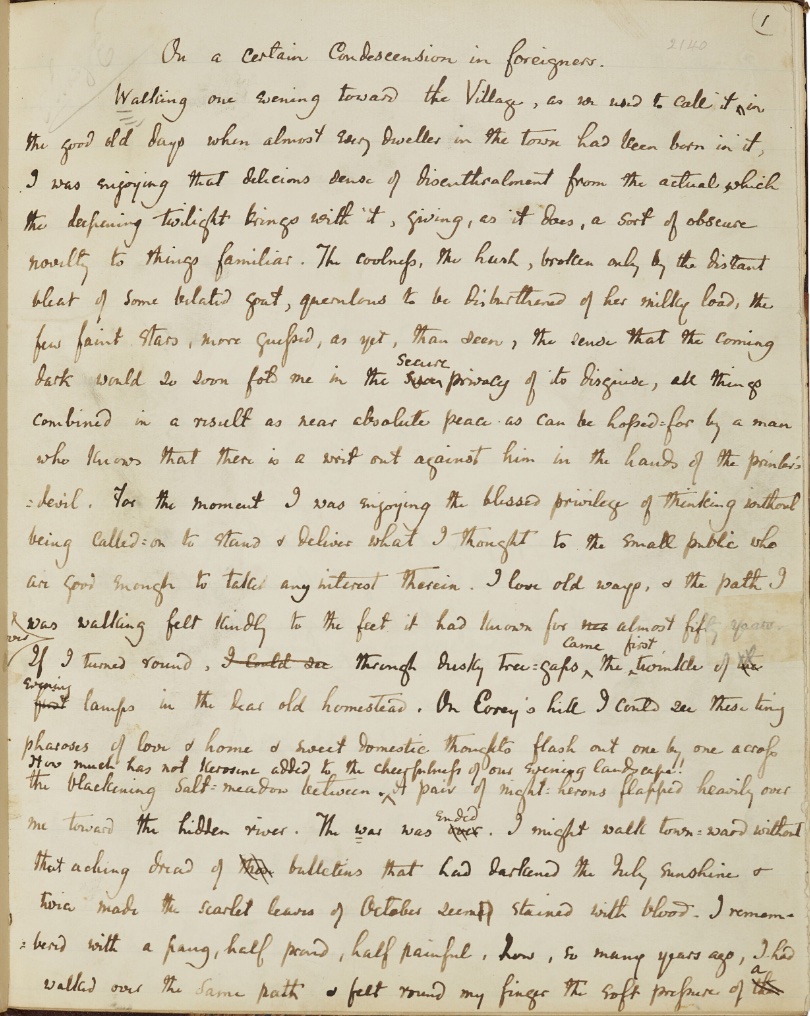 1
2140
On a certain Condescension in foreigners.
Walking one evening toward the Village, as we used to call it, in
the good old days when almost every dweller in the town had been born in it,
I was enjoying that delicious sense of disenthralment from the actual which
the deepening twilight brings with it, giving, as it does, a sort of obscure
novelty to things familiar. The coolness, the hush, broken only by the distant
bleat of some belated goat, querulous to be disburthened of her milky load, the
few faint stars, more guessed, as yet, than seen, the sense that the coming
secure
dark would so soon fold me in the privacy of its disguise, all things
combined in a result as near absolute peace as can be hoped=for by a man
who knows that there is a writ out against him in the hands of the printer's
=devil. For the moment I was enjoying the blessed privilege of thinking without
being called=on to stand & deliver what I thought to the small public who
are good enough to take any interest therein. I love old ways, & the path I
was walking felt kindly to the feet it had known for almost fifty years.
came first
If I turned round, I could see through dusky tree=gaps the twinkle of the
evening
first lamps in the dear old homestead. On Corey's hill I could see these tiny
pharoses of love & home & sweet domestic thoughts flash out one by one across
How much has not kerosene added to the cheerfulness of our evening landscape!!
the blackening salt=meadow between. A pair of night=herons flapped heavily over
ended
me toward the hidden river. The war was over. I might walk town=ward without
that aching dread of bulletins that had darkened the July sunshine &
twice made the scarlet leaves of October seem stained with blood. I remem-
=bered with a pang, half proud, half painful, how, so many years ago, I had
a
walked over the same path & felt round my finger the soft pressure of the